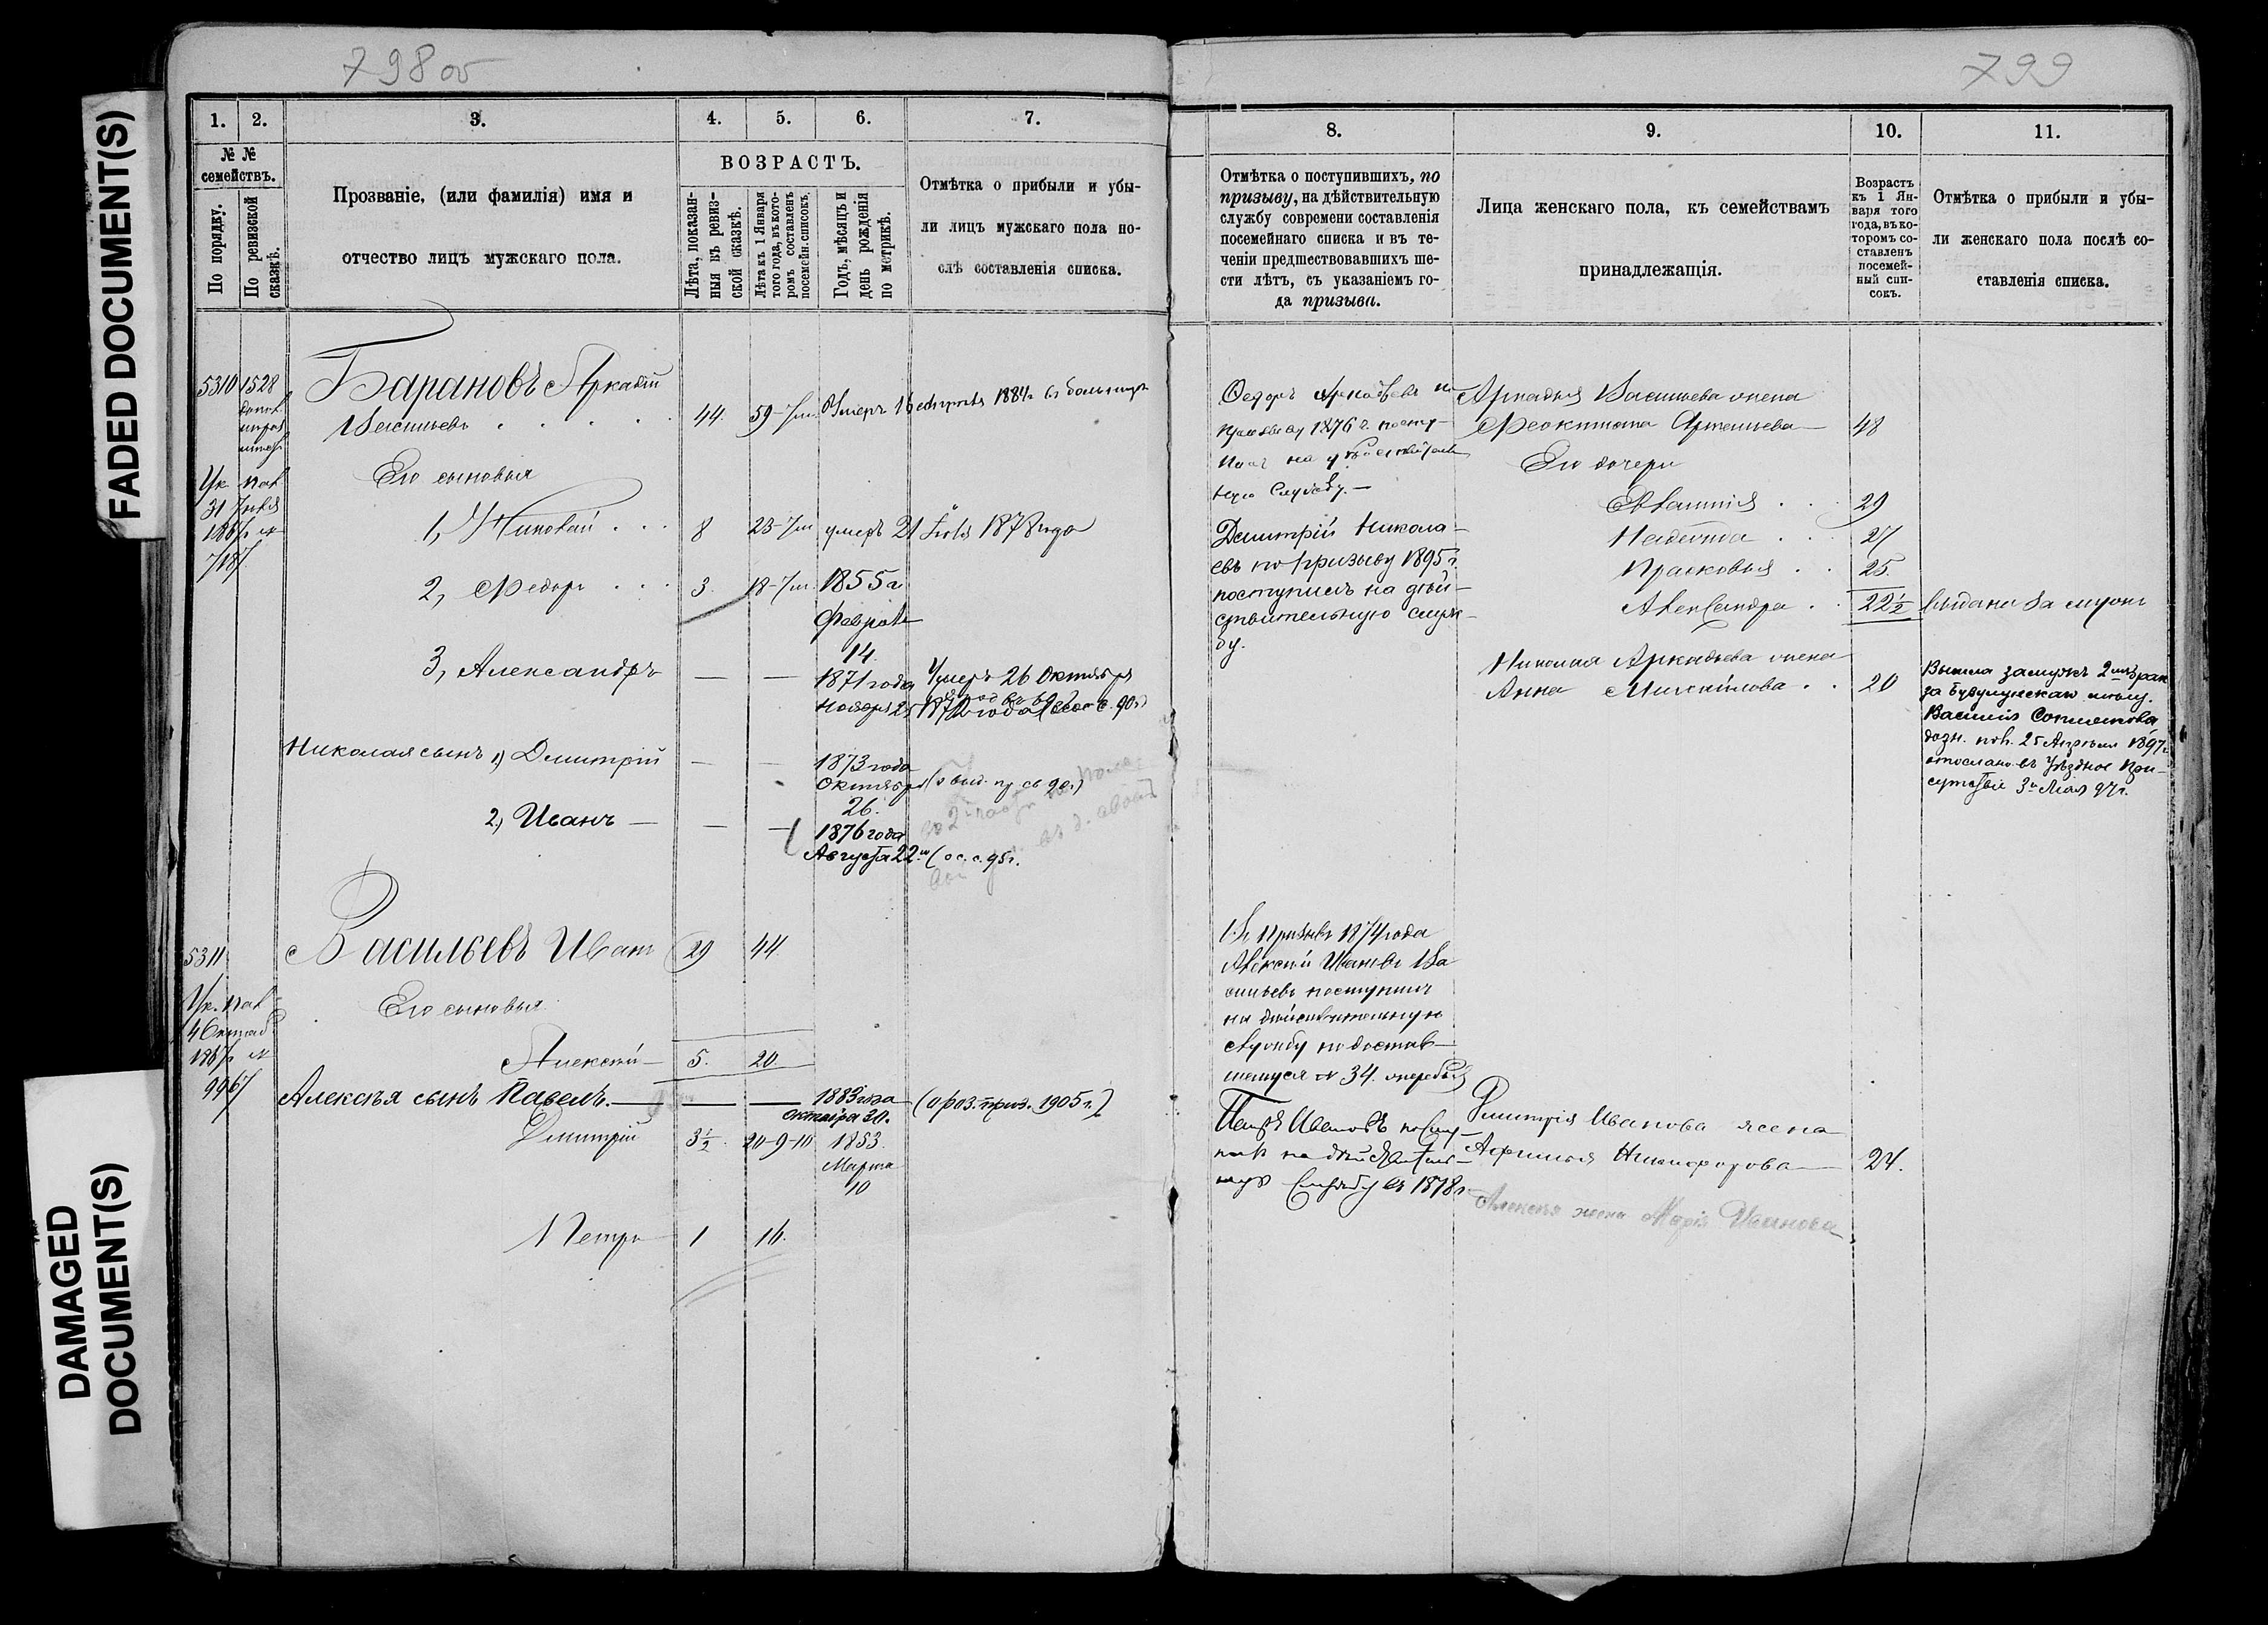 FADED DOCUMENT(S)
DAMAGED
DOCUMENT(S)
798 об
1. 2. 3. 4. 5. 6. 7.
№ №
семействъ.
По порядку.
По ревизской
сказкѣ.
Прозваніе, (или фамилія) имя и
отчество лицъ мужскаго пола.
ВОЗРАСТЪ.
Лѣта, показан-
ныя въ ревиз-
ской сказкѣ.
Лѣта къ 1 Января
того года, въ кото-
ромъ составленъ
посемейн. списокъ.
Годъ, мѣсяцъ и
день рожденія
по метрикѣ.
Отмѣтка о прибыли и убы-
ли лицъ мужскаго пола по-
слѣ составленія списка.
5310 1528
Барановъ Аркадій
Васильевъ 44. 59
Умеръ 1884г. въ больницѣ
Ук. пал.
31
Его сыновья
1, Николай 8 23 умеръ 21 Іюля 1878 года
2, Федоръ 3. 18 1855 г.
Февраля
14.
3, Александръ — — 1871 года
Ноября 25
Умеръ 26 Октября
Николая сынъ 1) Дмитрій — — 1873 года
Октября
26.
2) Иванъ — — — 1876 года
Августа 22 (о с. с. 95 г.
5311
Васильевъ Иванъ 29 44.
Ук. пал.
Его сыновья
Алексѣй 5. 20
Алексѣя сынъ Павелъ. — — — 1883 года
октября 30.
(о роз. приз. 1905 г.)
Дмитрій 3½ 20-9-10 1853.
Марта
10
Петръ 1 16.
799
8. 9. 10. 11.
Отмѣтка о поступившихъ, по
призыву, на дѣйствительную
службу современи составленія
посемейнаго списка и въ те-
ченіи предшествовавшихъ ше-
сти лѣтъ, съ указаніемъ го-
да призыва.
Лица женскаго пола, къ семействамъ
принадлежащія.
Возрастъ
къ 1 Ян-
варя того
года, въ ко-
торомъ со-
ставленъ
посемей-
ный спи-
сокъ.
Отмѣтка о прибыли и убы-
ли женскаго пола послѣ со-
ставленія списка.
Федоръ Аркадьевъ по
призыву 1876 г. посту-
пилъ на дѣйствитель
ную службу. —
Дмитрій Никола-
евъ по призыву 1895 г.
поступилъ на дѣй-
ствительную служ-
бу.
Аркадія Васильева жена
Феоктиста Артемьева 48
Его дочери
Евлампія 29
Надежда 27
Прасковья 25.
Александра 22½ выдана за мужъ
Николая Аркадьева жена
Анна 20
Вышла замужъ 2 мъ бракъ
за Бузулукскаго мѣщ.
Василія
25 Апрѣля 1897 г.
отослано въ Уѣздное При-
сутствіе 3 Мая 97 г.
Въ призывъ 1874 года
Алексѣй Ивановъ Ва
сильевъ поступилъ
на дѣйствительную
службу по достав-
шемуся № 34.
Петръ Ивановъ посту-
пилъ на дѣйствитель-
ную службу въ 1878 г.
Дмитрія Иванова жена
Афимья Никифорова 24.
Алексѣя жена Марія Иванова